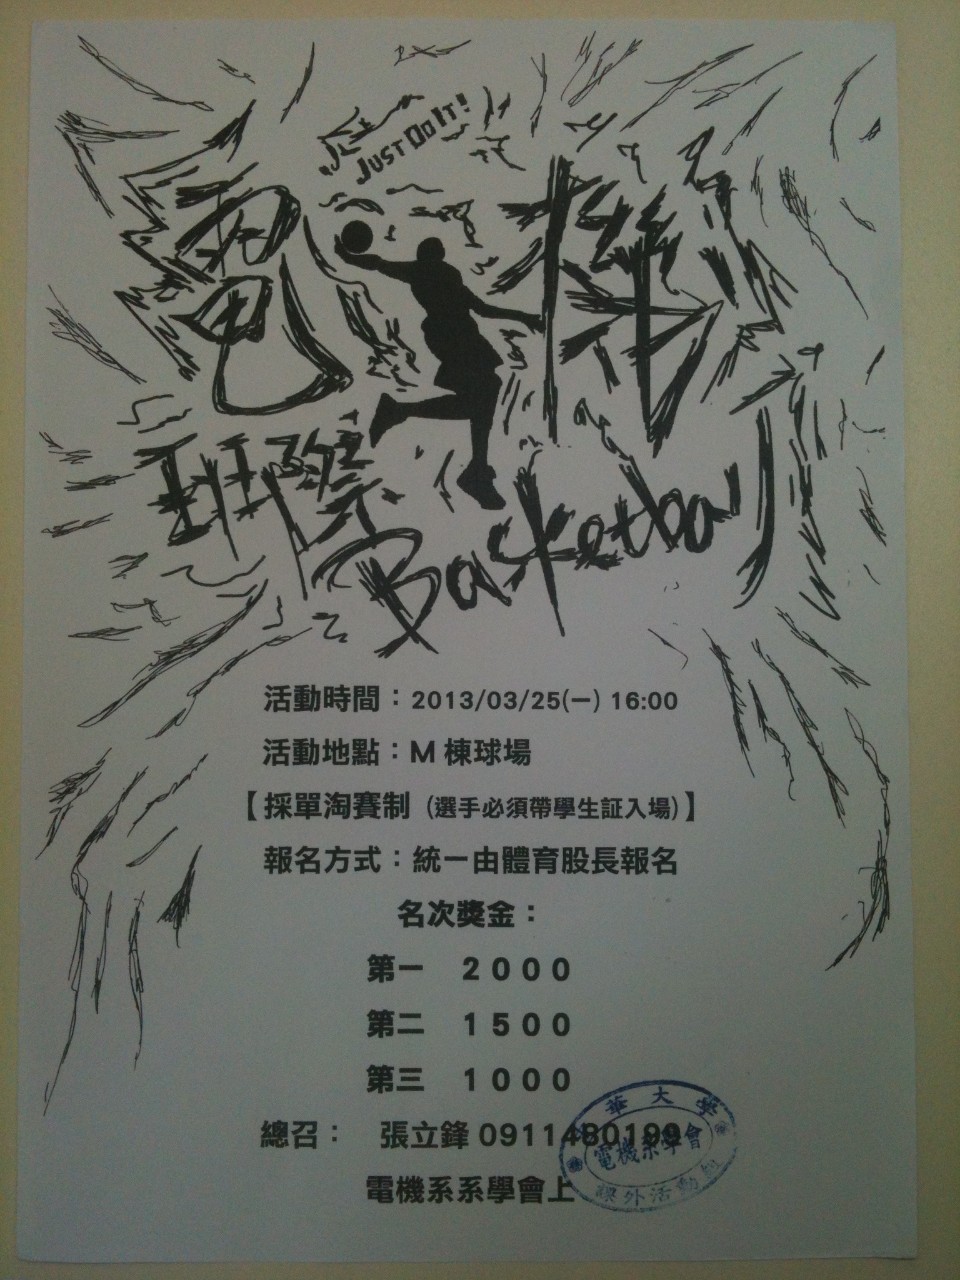 JUST DO IT!
電機
班際
Basketball
活動時間：2013/03/25(一) 16:00
活動地點：M 棟球場
【採單淘賽制 (選手必須帶學生証入場)】
報名方式：統一由體育股長報名
名次獎金：
第一 2000
第二 1500
第三 1000
總召： 張立鋒 0911480199
電機系系學會上
華大學
電機系學會
課外活動組